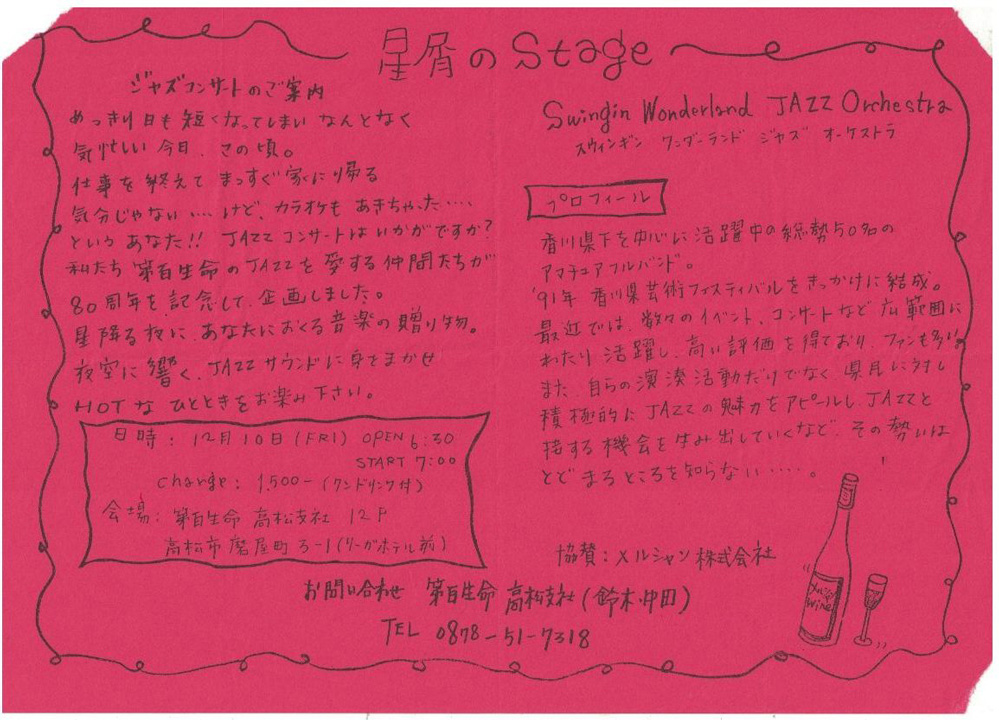 星屑のStage
ジャズコンサートのご案内
めっきり日も短くなってしまい なんとなく
気忙しい今日、この頃。
仕事を終えて まっすぐ家に帰る
気分じゃない…けど、カラオケもあきちゃった‥‥
という あなた!! JAZZコンサートはいかがですか?
私たち 第百生命のJAZZを愛する仲間たちが
80周年を記念して、企画しました。
星降る夜に、あなたにおくる音楽の贈り物。
夜空に響く、JAZZサウンドに身をまかせ
HOTな ひとときをお楽み下さい。
日時: 12月10日(FRI) OPEN 6:30
START 7:00
charge: 1,500-(ワンドリンク付)
会場: 第百生命 高松支社 12F
高松市 磨屋町 3-1(リーガホテル前)
Swingin Wonderland JAZZ Orchestra
スウィンギン ワンダーランド ジャズ オーケストラ
プロフィール
香川県下を中心に活躍中の総勢50名の
アマチュアフルバンド。
'91年 香川県芸術フェスティバルをきっかけに結成。
最近では、数々のイベント、コンサートなど広範囲に
わたり活躍し、高い評価を得ており、ファンも多い。
また、自らの演湊活動だけでなく、県民に対し
積極的にJAZZの魅力をアピールし、JAZZと
接する機会を生み出していくなど、その勢いは
とどまるところを知らない‥‥。
協賛:メルシャン株式会社
Wine
お問い合わせ 第百生命 高松支社(鈴木・中田)
TEL 0878-51-7318